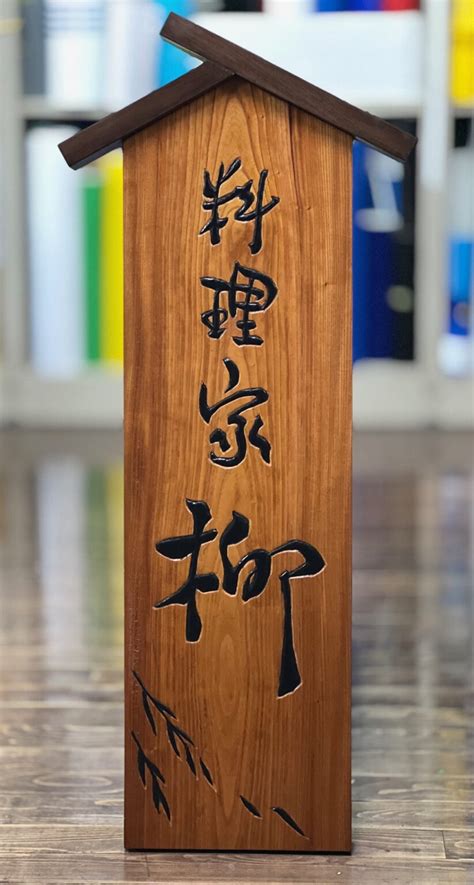 料理家柳